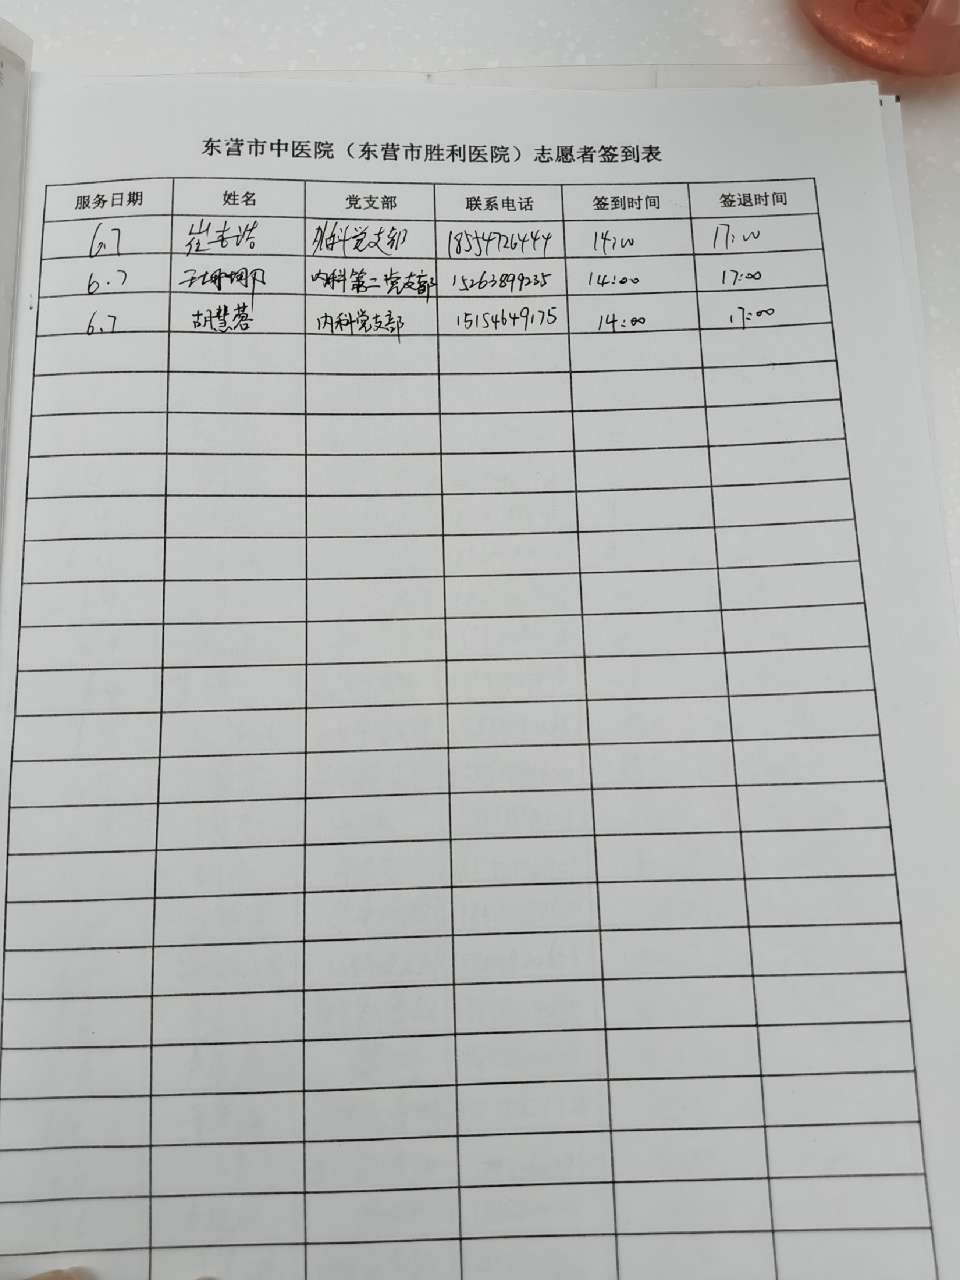 东营市中医院（东营市胜利医院）志愿者签到表
服务日期 姓名 党支部 联系电话 签到时间 签退时间
6.7 崔 浩 外科党支部 18554726444 14:00 17:00
6.7 王珊珊 内科第二党支部 15263899235 14:00 17:00
6.7 胡慧蓉 内科党支部 15154649175 14:00 17:00